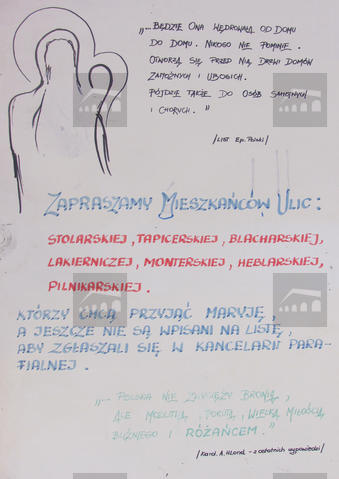 „... BĘDZIE ONA WĘDROWAŁA OD DOMU
DO DOMU. NIKOGO NIE POMINIE.
OTWORZĄ SIĘ PRZED NIĄ DRZWI DOMÓW
ZAMOŻNYCH I UBOGICH.
PÓJDZIE TAKŻE DO OSÓB SAMOTNYCH
I CHORYCH."
/LIST Ep. Polski/
ZAPRASZAMY MIESZKAŃCÓW ULIC:
STOLARSKIEJ, TAPICERSKIEJ, BLACHARSKIEJ,
LAKIERNICZEJ, MONTERSKIEJ, HEBLARSKIEJ,
PILNIKARSKIEJ.
KTÓRZY CHCĄ PRZYJĄĆ MARYJĘ,
A JESZCZE NIE SĄ WPISANI NA LISTĘ,
ABY ZGŁASZALI SIĘ W KANCELARII PARA-
FIALNEJ.
„... POLSKA NIE ZWYCIĘŻY BRONIĄ,
ALE MODLITWĄ, POKUTĄ, WIELKĄ MIŁOŚCIĄ
BLIŹNIEGO I RÓŻAŃCEM."
/Kard. A. Hlond - z ostatnich wypowiedzi/